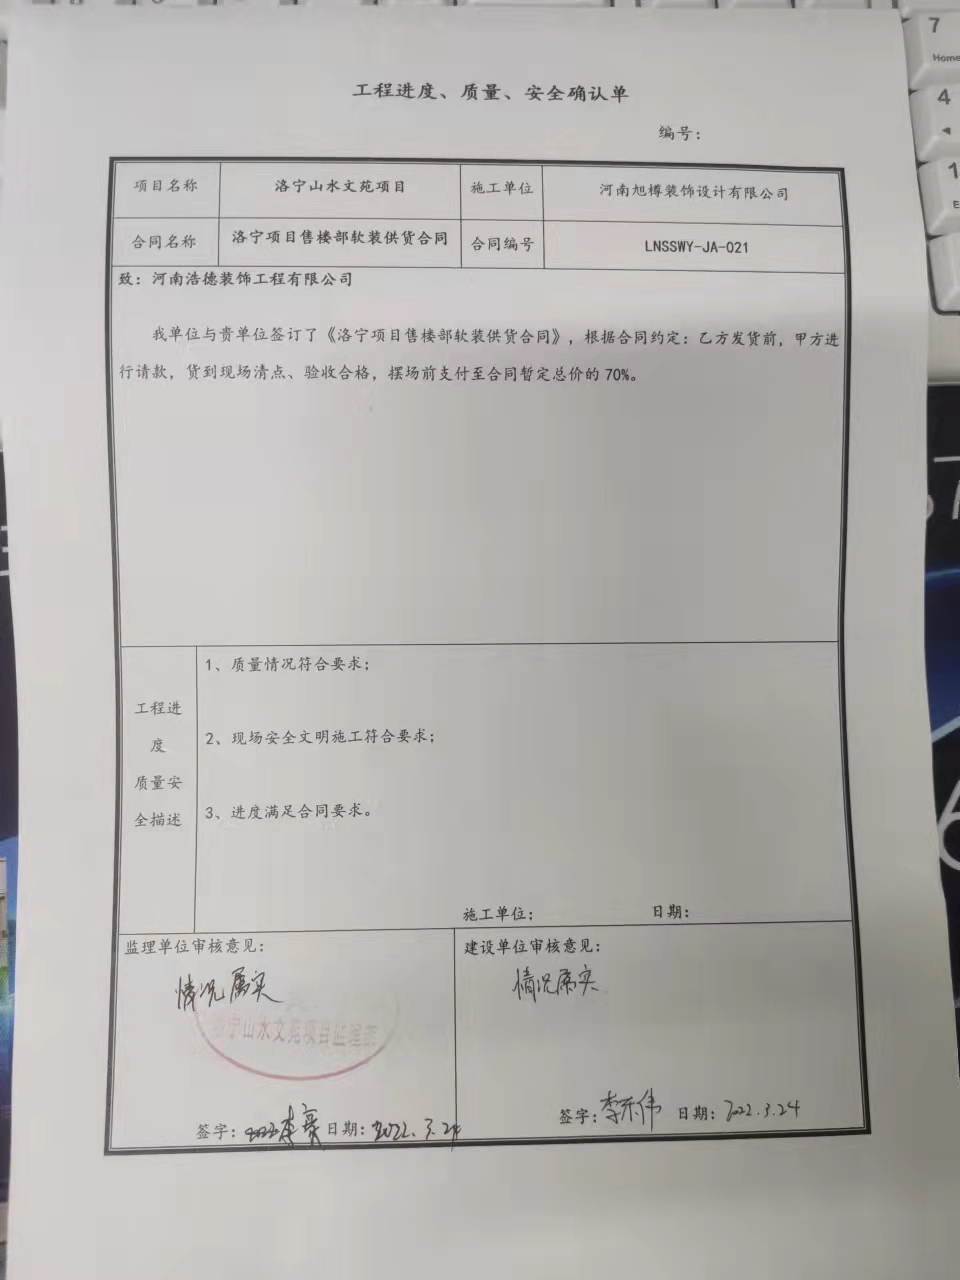 工程进度、质量、安全确认单
编号：
项目名称 洛宁山水文苑项目 施工单位 河南旭樽装饰设计有限公司
合同名称 洛宁项目售楼部软装供货合同 合同编号 LNSSWY-JA-021
致：河南浩德装饰工程有限公司
我单位与贵单位签订了《洛宁项目售楼部软装供货合同》，根据合同约定：乙方发货前，甲方进
行请款，货到现场清点、验收合格，摆场前支付至合同暂定总价的 70%。
工程进
度
质量安
全描述
1、质量情况符合要求；
2、现场安全文明施工符合要求；
3、进度满足合同要求。
施工单位； 日期：
监理单位审核意见：
情况属实
宁山水文苑项目监理
签字： 日期：2022.3.24
建设单位审核意见：
情况属实
签字： 日期：2022.3.24
7
Home
4
1